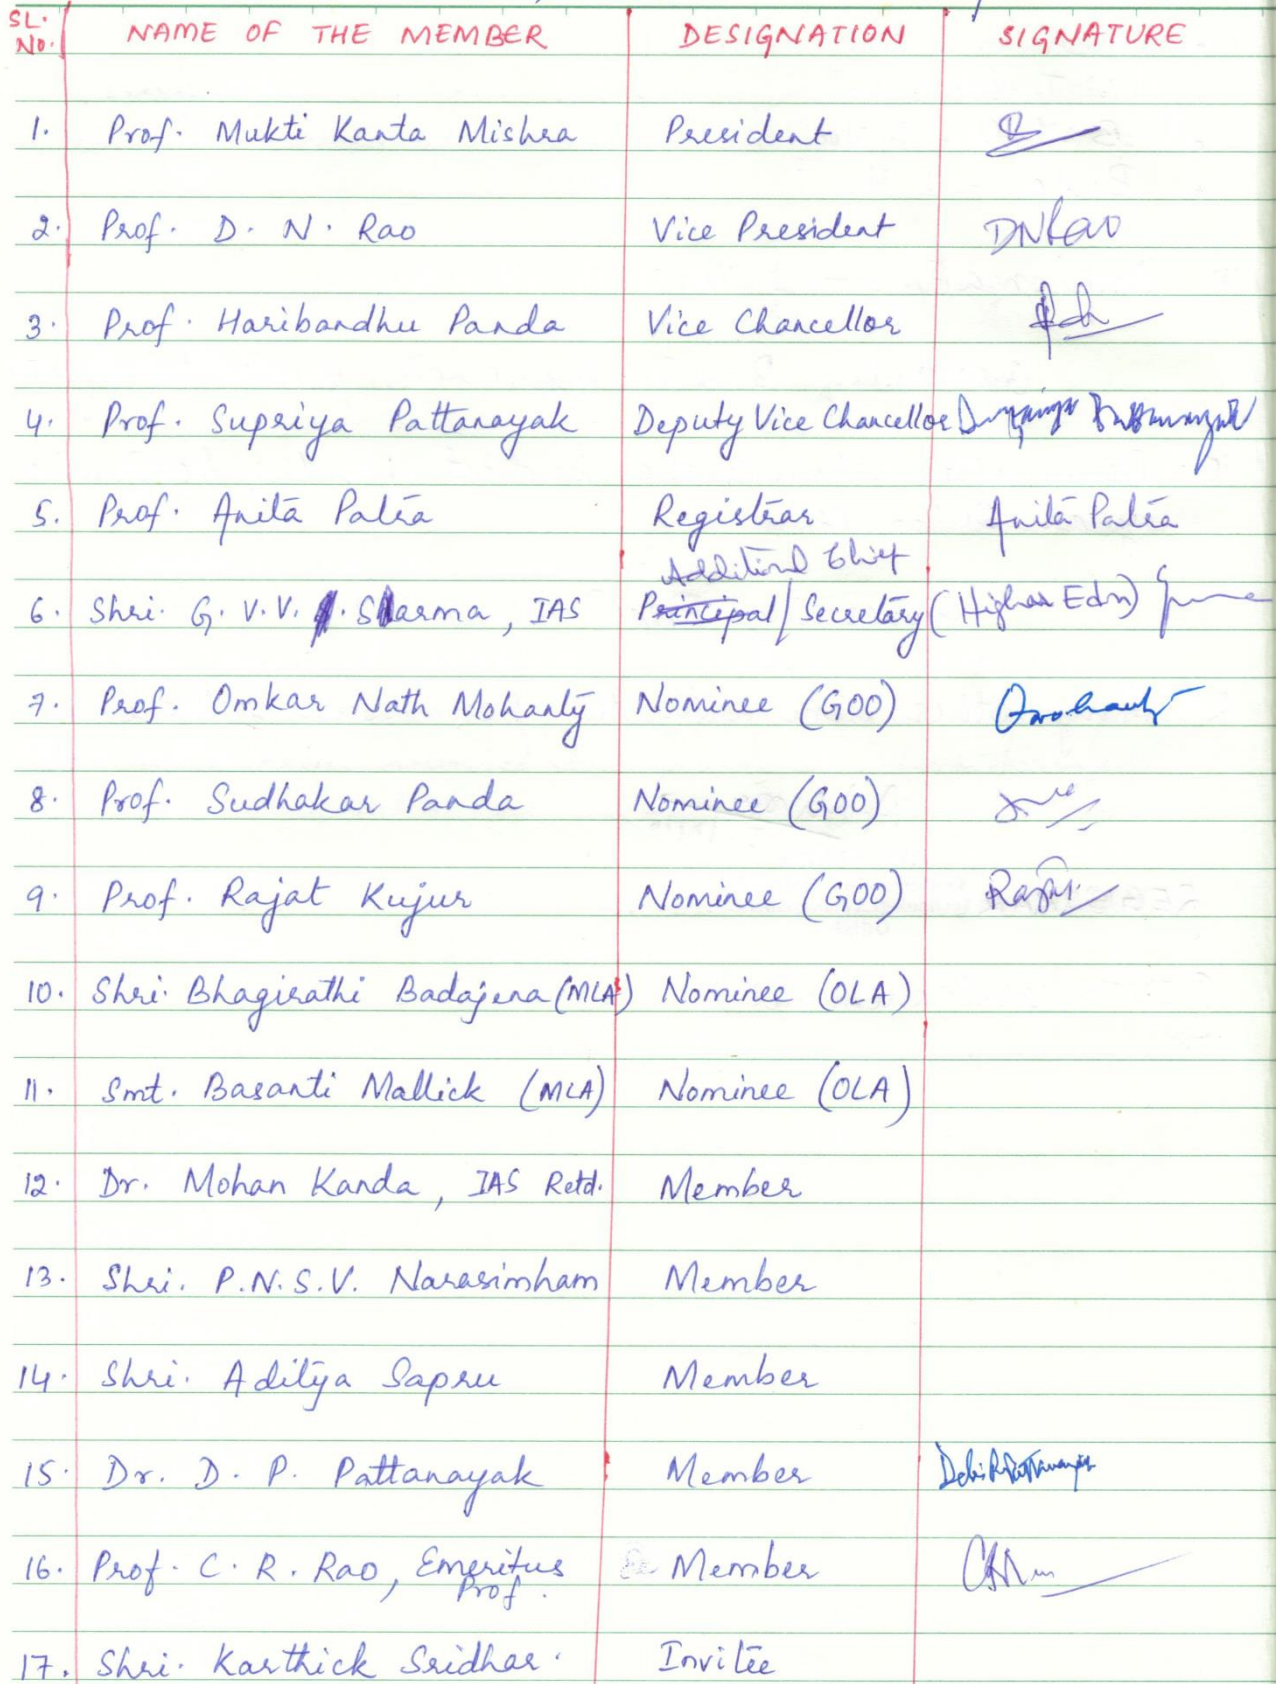 SL. No. NAME OF THE MEMBER DESIGNATION SIGNATURE
1. Prof. Mukti Kanta Mishra President
2. Prof. D. N. Rao Vice President DNRao
3. Prof. Haribandhu Panda Vice Chancellor
4. Prof. Supriya Pattanayak Deputy Vice Chancellor
5. Prof. Anita Patra Registrar Anita Patra
Additional Chief
6. Shri. G. V. V. Sharma, IAS Principal/Secretary (Higher Edn)
7. Prof. Omkar Nath Mohanty Nominee (GOO) Omohanty
8. Prof. Sudhakar Panda Nominee (GOO)
9. Prof. Rajat Kujur Nominee (GOO)
10. Shri. Bhagirathi Badajena (MLA) Nominee (OLA)
11. Smt. Basanti Mallick (MLA) Nominee (OLA)
12. Dr. Mohan Kanda, IAS Retd. Member
13. Shri. P.N.S.V. Narasimham Member
14. Shri. Aditya Sapru Member
15. Dr. D. P. Pattanayak Member
16. Prof. C. R. Rao, Emeritus Prof. Member
17. Shri. Karthick Sridhar. Invitee